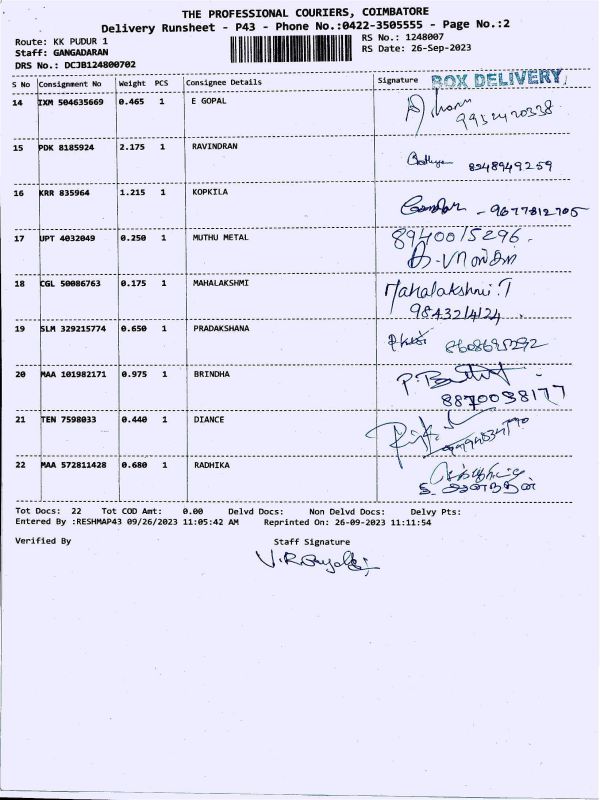 THE PROFESSIONAL COURIERS, COIMBATORE
Delivery Runsheet - P43 - Phone No.:0422-3505555 - Page No.:2
Route: KK PUDUR 1
Staff: GANGADARAN
DRS No.: DCJB124800702
RS No.: 1248007
RS Date: 26-Sep-2023
S No Consignment No Weight PCS Consignee Details Signature BOX DELIVERY
14 IXM 504635669 0.465 1 E GOPAL
15 PDK 8185924 2.175 1 RAVINDRAN 8248949259
16 KRR 835964 1.215 1 KOPKILA - 9677812705
17 UPT 4032049 0.250 1 MUTHU METAL 8940015296.
18 CGL 50086763 0.175 1 MAHALAKSHMI Mahalakshmi.T
9843214124
19 SLM 329215774 0.650 1 PRADAKSHANA
20 MAA 101982171 0.975 1 BRINDHA
8870038177
21 TEN 7598033 0.440 1 DIANCE
22 MAA 572811428 0.680 1 RADHIKA
Tot Docs: 22 Tot COD Amt: 0.00 Delvd Docs: Non Delvd Docs: Delvy Pts:
Entered By :RESHMAP43 09/26/2023 11:05:42 AM Reprinted On: 26-09-2023 11:11:54
Verified By Staff Signature